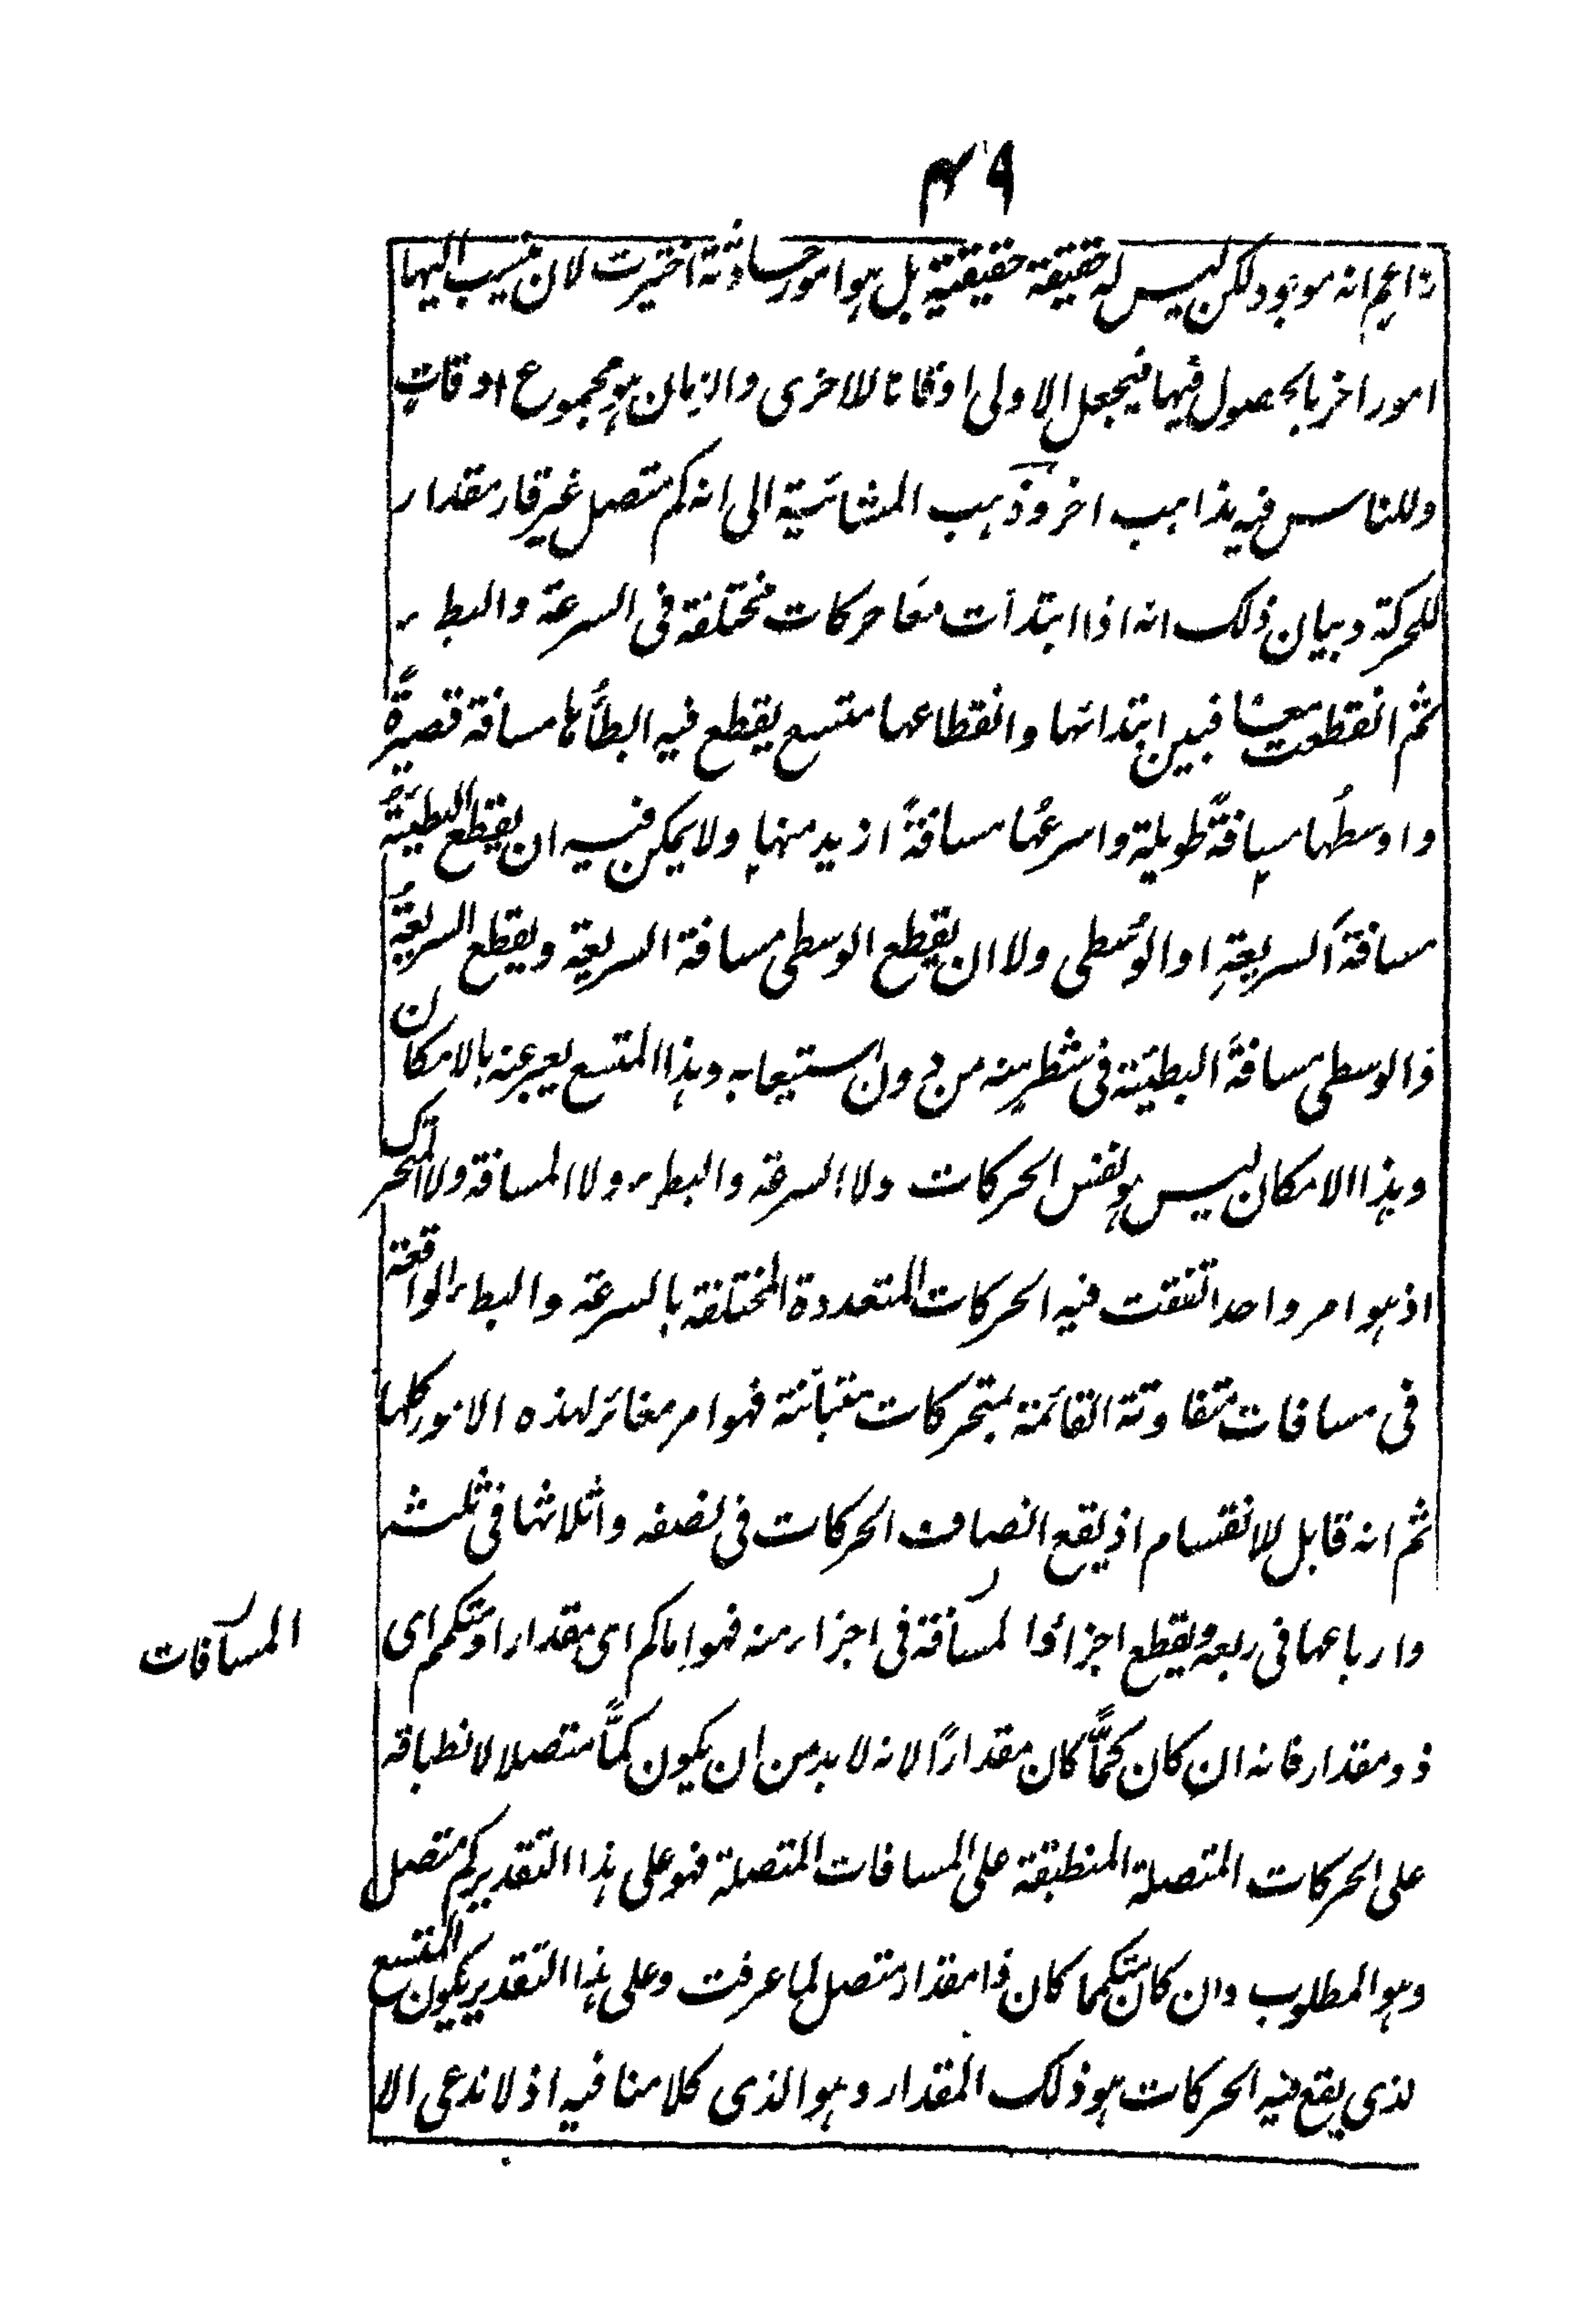 ٩٤
زاعم انه موجود لكن ليس له حقيقة حقيقية بل هو امور حادثة اختيرت لان ينسب اليها
امور اخر بالحصول فيها فيجعل الاولى اوقاتا للاخرى والزمان هو مجموع اوقات
وللناس فيه مذاهب اخر وذهب المشائية الى انه كم متصل غير قار مقدار
للحركة وبيان ذلك انه اذا ابتدأت معًا حركات مختلفة فى السرعة والبطء
ثم انقطعت معًا فبين ابتدائها وانقطاعها متسع يقطع فيه ابطأُها مسافة قصيرةً
واوسطُها مسافةً طويلة واسرعُها مسافةً ازيد منها ولا يمكن فيه ان يقطع البطيئةُ
مسافةَ السريعةِ او الوُسطى ولا ان يقطع الوسطى مسافة السريعة ويقطع السريعةُ
والوسطى مسافةَ البطيئة فى شطر منه من دون استيعابه وهذا المتسع يعبر عنه بالامكان
وهذا الامكان ليس هو نفس الحركات ولا السرعة والبطء ولا المسافة ولا المتحرك
اذ هو امر واحد اتفقت فيه الحركات المتعددة المختلفة بالسرعة والبطء الواقعة
فى مسافات متفاوتة القائمة بمتحركات متبائنة فهو امر مغائر لهذه الامور كلها
ثم انه قابل للانقسام اذ يقع انصاف الحركات فى نصفه واثلاثها فى ثلثه
وارباعها فى ربعه ويقطع اجزاؤا لمسافة فى اجزاء منه فهو اما كم اى مقدار او متكمم اى
المسافات
ذو مقدار فانه ان كان كمًّا كان مقدارًا لانه لا بد من ان يكون كمًّا متصلا لانطباقه
على الحركات المتصلة المنطبقة على المسافات المتصلة فهو على هذا التقدير كم متصل
وهو المطلوب وان كان متكمما كان ذا مقدار متصل لما عرفت وعلى هذا التقدير يكون المتسع
لذى يقع فيه الحركات هو ذلك المقدار وهو الذى كلامنا فيه اذ لا ندعى الا